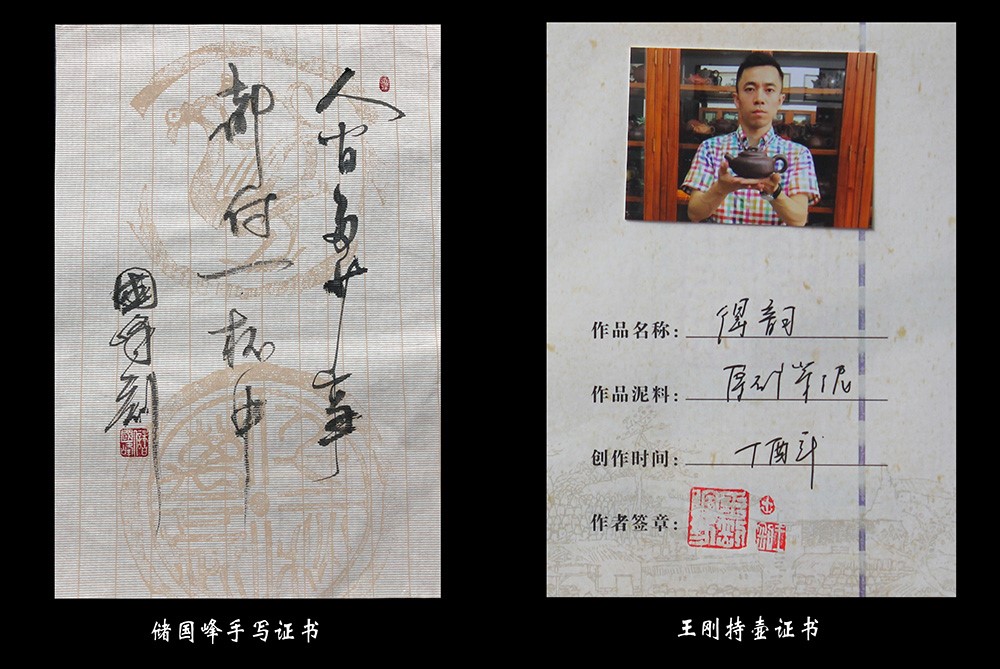 人间多少事
都付一杯中
國峰刻
储国峰手写证书
作品名称：得韵
作品泥料：原矿紫泥
创作时间：丁酉年
作者签章：
王刚持壶证书